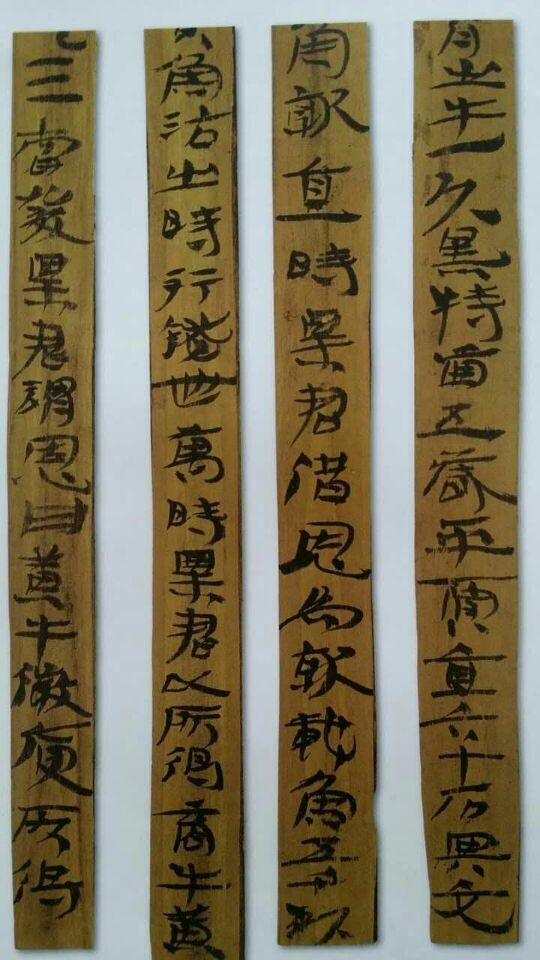 育出牛一頭黑特齒五歲平賈直六十石與交
魚就直時粟君借恩為就載魚五千頭
魚沽出時行錢卌萬時粟君以所得商牛黃
三當發粟君謂恩曰黃牛微庾所得